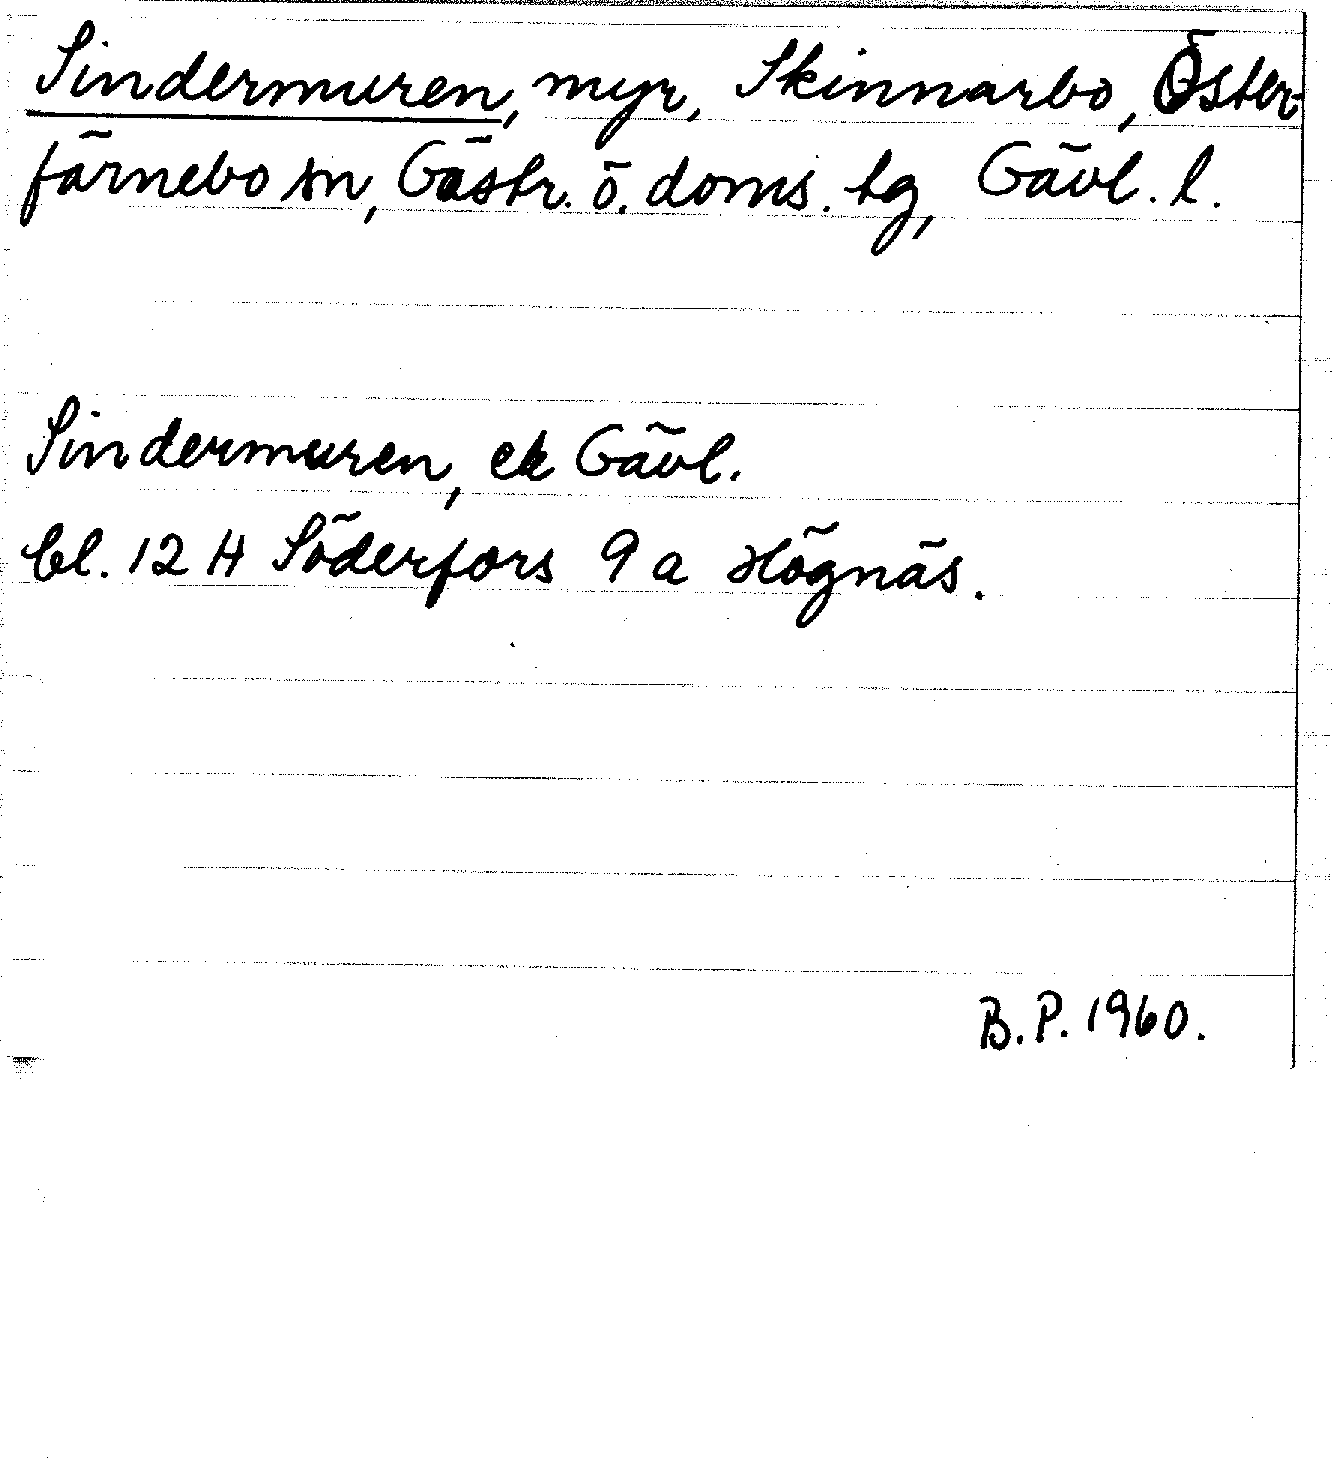 Sindermuren, myr, Skinnarbo, Öster-
färnebo sn, Gästr. ö. doms. tg, Gävl. l.
Sindermuren, ek Gävl.
bl. 12 H Söderfors 9 a Högnäs.
B.P. 1960.